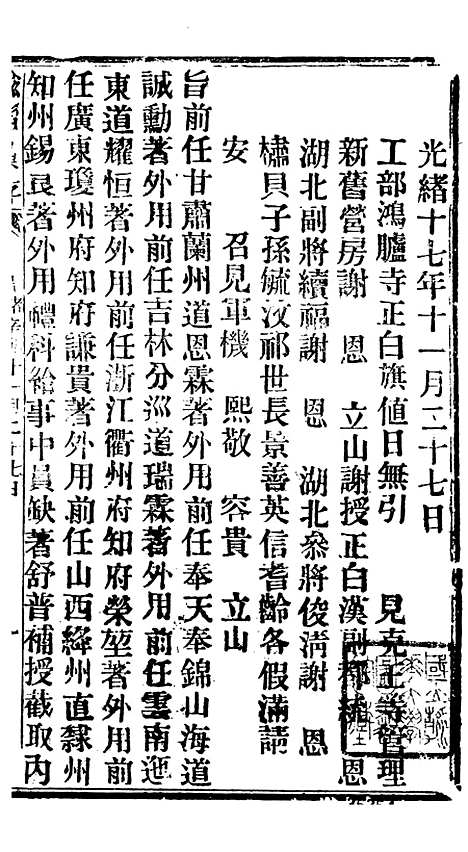 光緒十七年十一月二十七日
工部鴻臚寺正白旗值日無引　見克王等管理
新舊營房謝　恩　立山謝授正白漢副都統　恩
湖北副將續福謝　恩　湖北叅將俊淸謝　恩
橚貝子孫毓汶祁世長景善英信耆齡各假滿請
安　召見軍機　熙敬　容貴　立山
旨前任甘肅蘭州道恩霖著外用前任奉天奉錦山海道
誠勳著外用前任吉林分巡道瑞霖著外用前任雲南迤
東道耀恒著外用前任浙江衢州府知府榮堃著外用前
任廣東瓊州府知府謙貴著外用前任山西絳州直隸州
知州錫良著外用禮科給事中員缺著舒普補授截取內